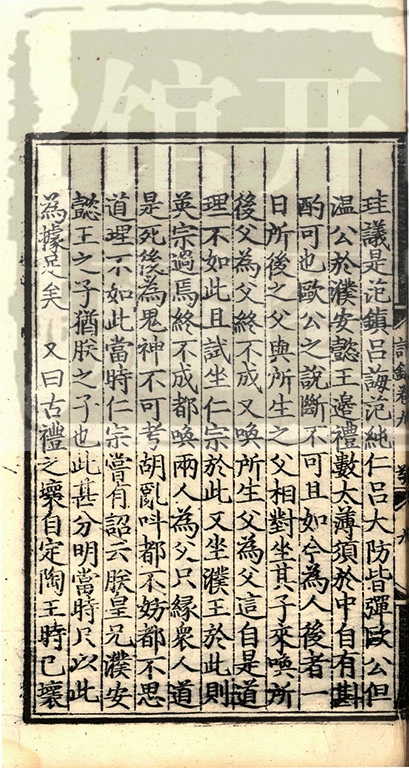 珪議是范鎮呂誨范純仁呂大防皆彈歐公但
温公於濮安懿王邊禮數太薄須於中自有斟
酌可也歐公之說斷不可且如今為人後者一
日所後之父與所生之父相對坐其子來喚所
後父為父終不成又喚所生父為父這自是道
理不如此且試坐仁宗於此又坐濮王於此則
英宗過焉終不成都喚兩人為父只縁衆人道
是死後為鬼神不可考胡亂呌都不妨都不思
道理不如此當時仁宗嘗有詔云朕皇兄濮安
懿王之子猶朕之子也此甚分明當時只以此
為據足矣 又曰古禮之壞自定陶王時已壞
開館